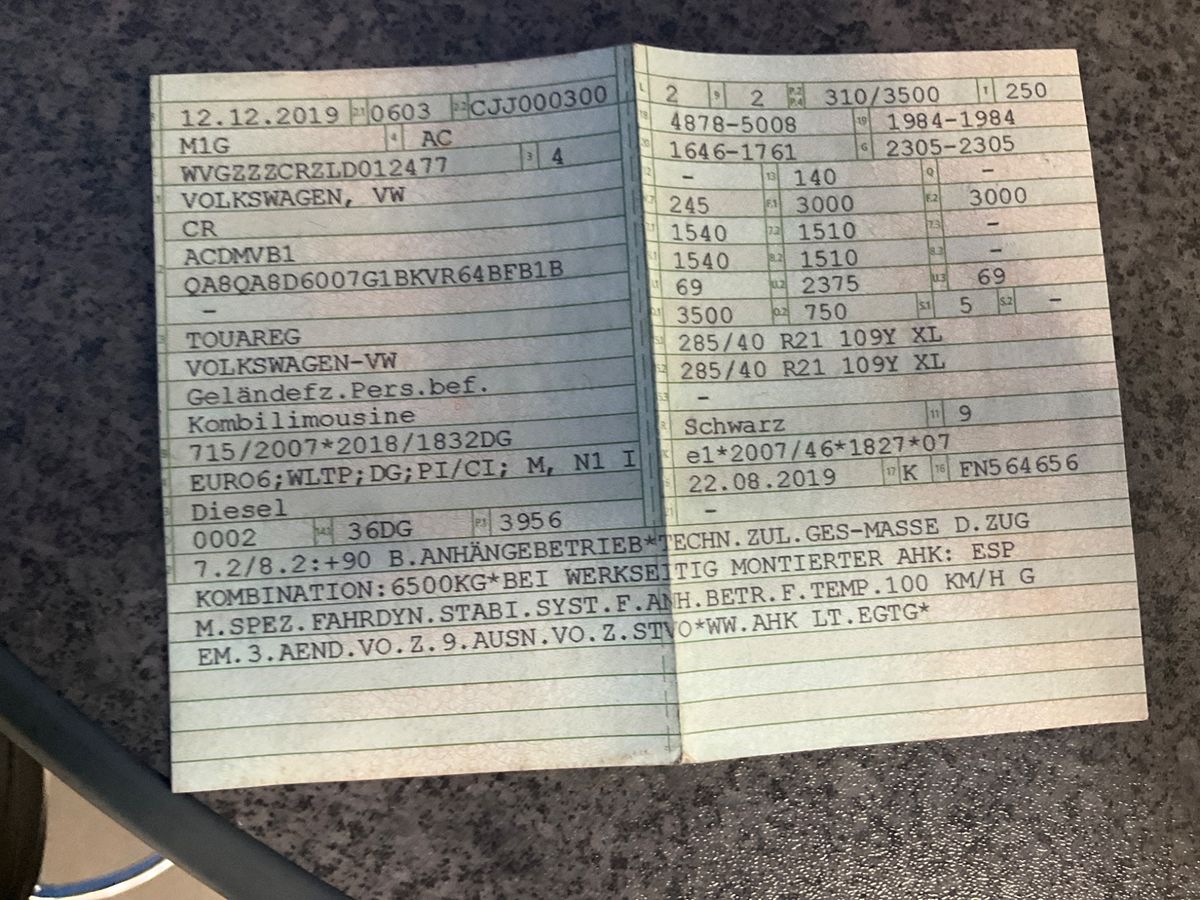 12.12.2019 2.1 0603 2.2 CJJ000300
M1G 4 AC
WVGZZZCRZLD012477 3 4
VOLKSWAGEN, VW
CR
ACDMVB1
QA8QA8D6007G1BKVR64BFB1B
–
TOUAREG
VOLKSWAGEN-VW
Geländefz.Pers.bef.
Kombilimousine
715/2007*2018/1832DG
EURO6;WLTP;DG;PI/CI; M, N1 I
Diesel
0002 14.1 36DG P.1 3956
L 2 9 2 P.2 P.4 310/3500 T 250
18 4878-5008 19 1984-1984
20 1646-1761 G 2305-2305
12 – 13 140 Q –
V.7 245 F.1 3000 F.2 3000
7.1 1540 7.2 1510 7.3 –
8.1 1540 8.2 1510 8.3 –
U.1 69 U.2 2375 U.3 69
O.1 3500 O.2 750 S.1 5 S.2 –
15.1 285/40 R21 109Y XL
15.2 285/40 R21 109Y XL
15.3 –
R Schwarz 11 9
K e1*2007/46*1827*07
6 22.08.2019 17 K 16 FN564656
21 –
7.2/8.2:+90 B.ANHÄNGEBETRIEB*TECHN.ZUL.GES-MASSE D.ZUG
KOMBINATION:6500KG*BEI WERKSEITIG MONTIERTER AHK: ESP
M.SPEZ.FAHRDYN.STABI.SYST.F.ANH.BETR.F.TEMP.100 KM/H G
EM.3.AEND.VO.Z.9.AUSN.VO.Z.STVO*WW.AHK LT.EGTG*